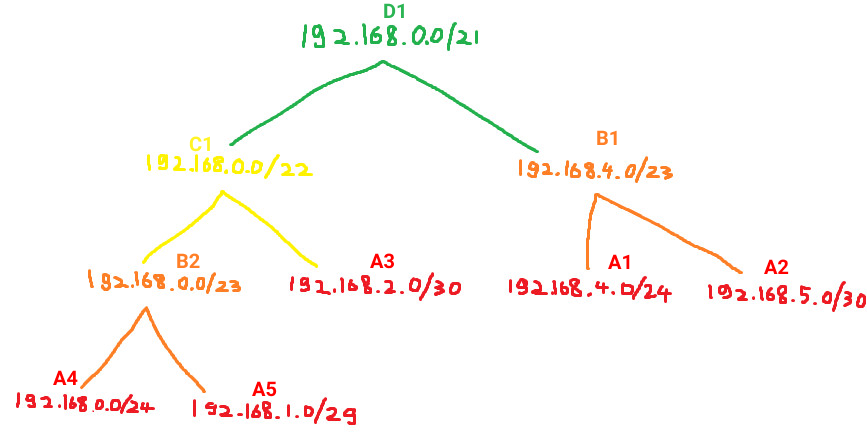 D1
192.168.0.0/21
C1
192.168.0.0/22
B1
192.168.4.0/23
B2
192.168.0.0/23
A3
192.168.2.0/30
A1
192.168.4.0/24
A2
192.168.5.0/30
A4
192.168.0.0/24
A5
192.168.1.0/29